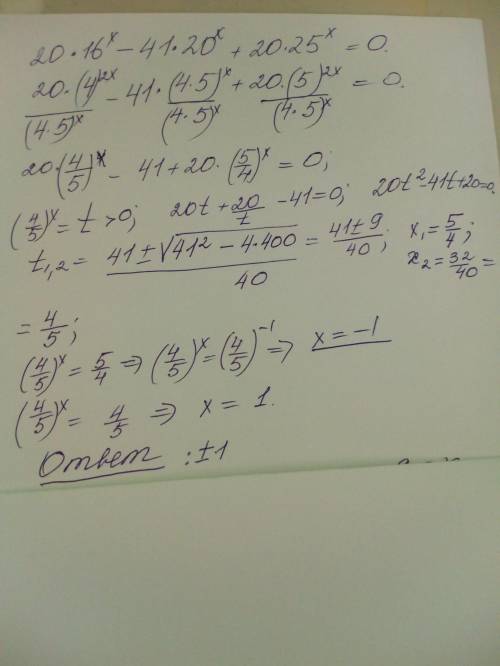 20·16^x − 41·20^x + 20·25^x = 0.
20·(4)^2x/(4·5)^x − 41·(4·5)^x/(4·5)^x + 20·(5)^2x/(4·5)^x = 0.
20·(4/5)^x − 41 + 20·(5/4)^x = 0;
(4/5)^x = t > 0; 20t + 20/t − 41 = 0; 20t² − 41t + 20 = 0.
t₁,₂ = (41 ± √(41² − 4·400))/40 = (41 ± 9)/40; x₁ = 5/4;
x₂ = 32/40 =
= 4/5;
(4/5)^x = 5/4 ⇒ (4/5)^x = (4/5)^−1 ⇒ x = −1
(4/5)^x = 4/5 ⇒ x = 1.
Ответ : ±1